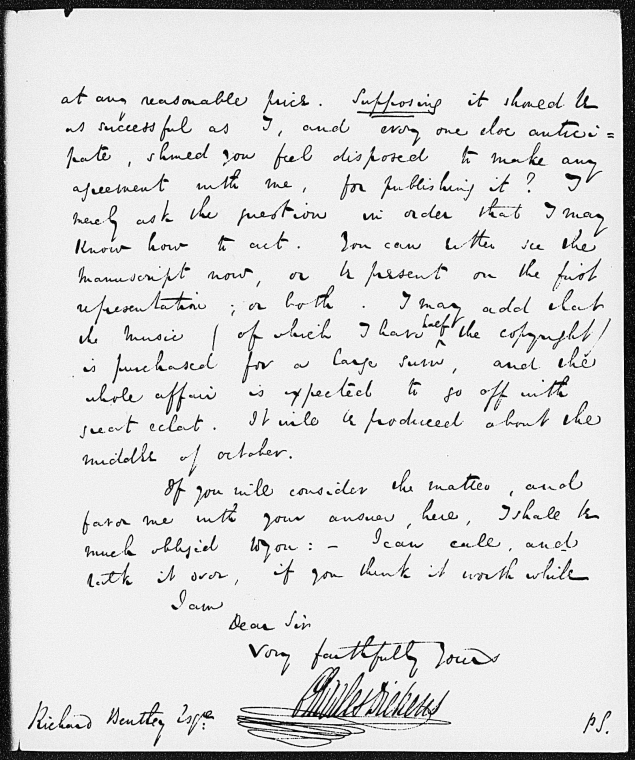 at any reasonable price. Supposing it should be
as successful as I, and every one else antici=
pate, should you feel disposed to make any
agreement with me, for publishing it? I
merely ask the question in order that I may
know how to act. You can either see the
Manuscript now, or be present on the first
representation; or both. I may add that
the music (of which I have half the copyright)
is purchased for a large sum, and the
whole affair is expected to go off with
great eclat. It will be produced about the
middle of October.
If you will consider the matter, and
favor me with your answer, here, I shall be
much obliged to you: – I can call, and
talk it over, if you think it worth while
I am
Dear Sir
Very faithfully Yours
Charles Dickens
Richard Bentley Esqre
PS.